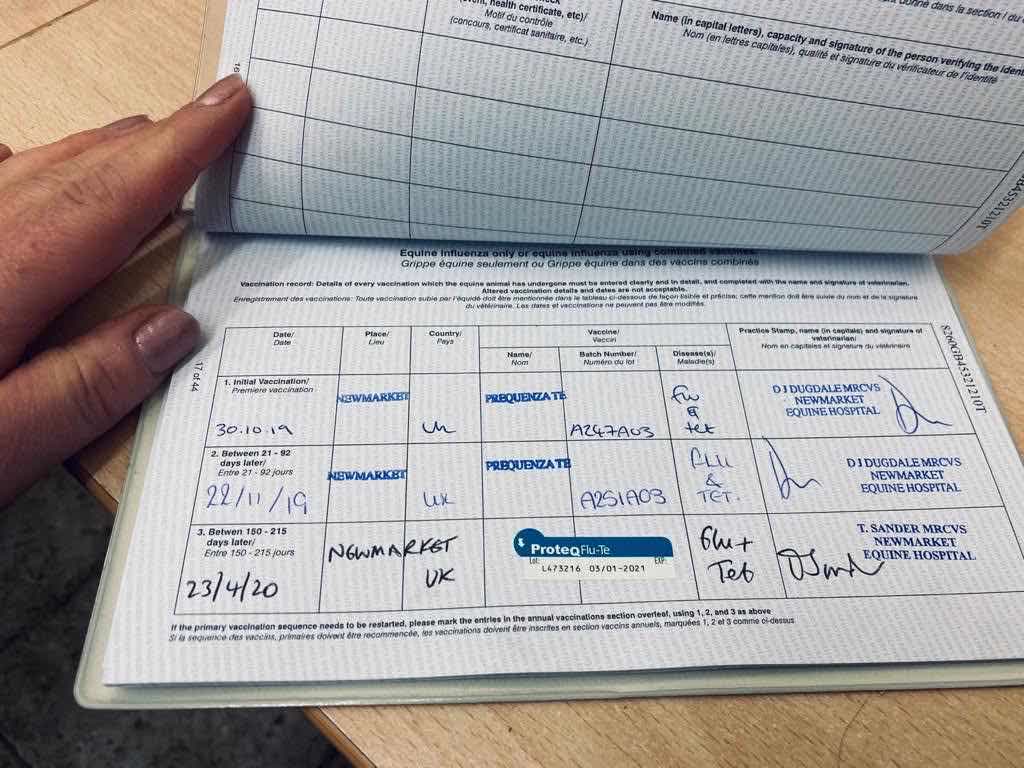 health certificate, etc)/
Motif du contrôle
(concours, certificat sanitaire, etc.)
donné dans la section / du
Name (in capital letters), capacity and signature of the person verifying the
Nom (en lettres capitales), qualité et signature du vérificateur de l'identité
Equine Influenza only or equine influenza using combined vaccines
Grippe équine seulement ou Grippe équine dans des vaccins combinés
Vaccination record: Details of every vaccination which the equine animal has undergone must be entered clearly and in detail, and completed with the name and signature of veterinarian.
Altered vaccination details and dates are not acceptable.
Enregistrement des vaccinations: Toute vaccination subie par l'équidé doit être mentionnée dans le tableau ci-dessous de façon lisible et précise; cette mention doit être suivie du nom et de la signature
du vétérinaire. Les dates et vaccinations ne peuvent pas être modifiés.
Date/
Date
Place/
Lieu
Country/
Pays
Vaccine/
Vaccin
Name/
Nom
Batch Number/
Numéro du lot
Disease(s)/
Maladie(s)
Practice Stamp, name (in capitals) and signature of
veterinarian/
Nom en capitales et signature du vétérinaire
8260GB45321210T
17 of 44
1. Initial Vaccination/
Premiere vaccination
30.10.19
NEWMARKET
UK
PREQUENZA TE
A247A03
flu
&
tet
D J DUGDALE MRCVS
NEWMARKET
EQUINE HOSPITAL
2. Between 21 - 92
days later/
Entre 21 - 92 jours
22/11/19
NEWMARKET
UK
PREQUENZA TE
A251A03
FLU
&
TET.
D J DUGDALE MRCVS
NEWMARKET
EQUINE HOSPITAL
3. Betwen 150 - 215
days later/
Entre 150 - 215 jours
23/4/20
NEWMARKET
UK
ProteqFlu-Te
Lot: EXP:
L473216 03/01-2021
Flu +
Tet
T. SANDER MRCVS
NEWMARKET
EQUINE HOSPITAL
If the primary vaccination sequence needs to be restarted, please mark the entries in the annual vaccinations section overleaf, using 1, 2, and 3 as above
Si la sequence des vaccins, primaires doivent être recommencée, les vaccinations doivent être inscrites en section vaccins annuels, marquées 1, 2 et 3 comme ci-dessus